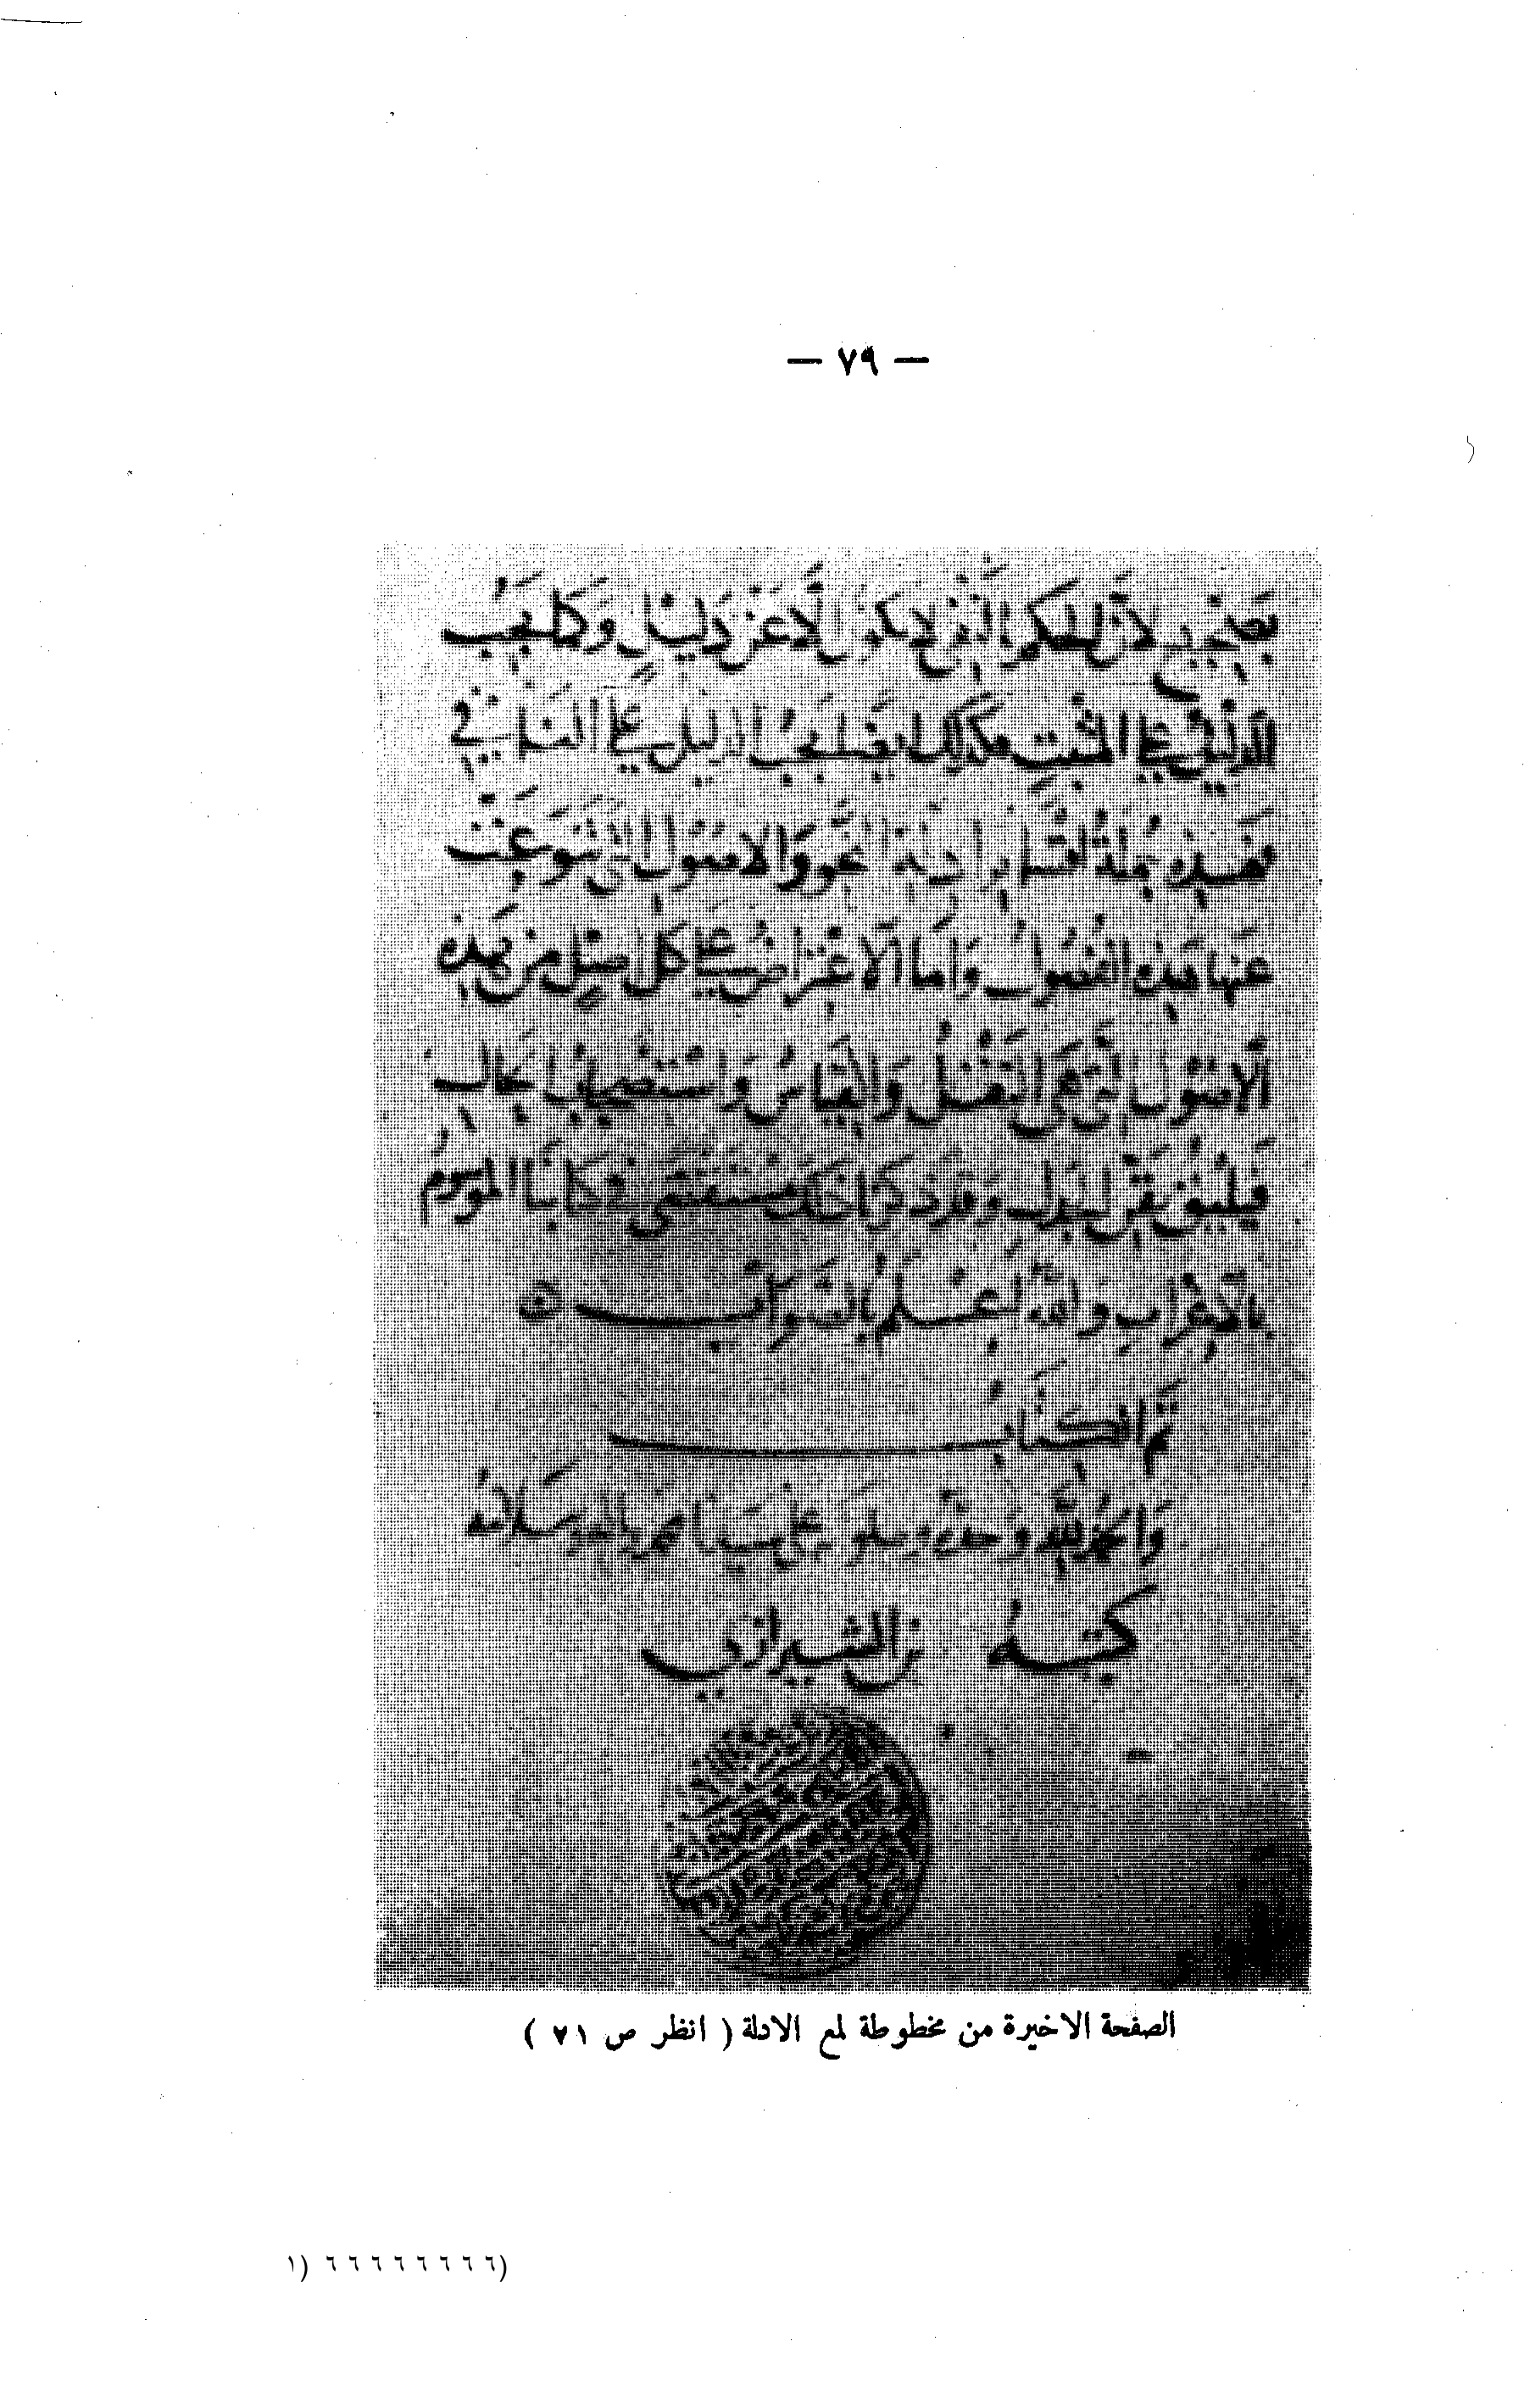 — ٧٩ —
بصحيح لان الحكم النفي لا يكون الا عن دليل وكما يجب
الدليل على المثبت فكذلك ايضا يجب الدليل على النافي
فهذه جملة اقسام ادلة النحو والاصول التي تنوعت
عنها هذه الفصول واما الاعتراض على كل اصل من هذه
الاصول التي هي النقل والقياس واستصحاب الحال
فيليق بفن الجدل وقد ذكرنا ذلك مستقصى في كتابنا الموسوم
بالاغراب والله اعلم بالصواب
تم الكتاب
والحمد لله وحده وصلوته على سيدنا محمد واله وسلامه
كتبه الشيرازي
الصفحة الاخيرة من مخطوطة لمع الادلة ( انظر ص ٧١ )
١) ٦ ٦ ٦ ٦ ٦ ٦ ٦ ٦)